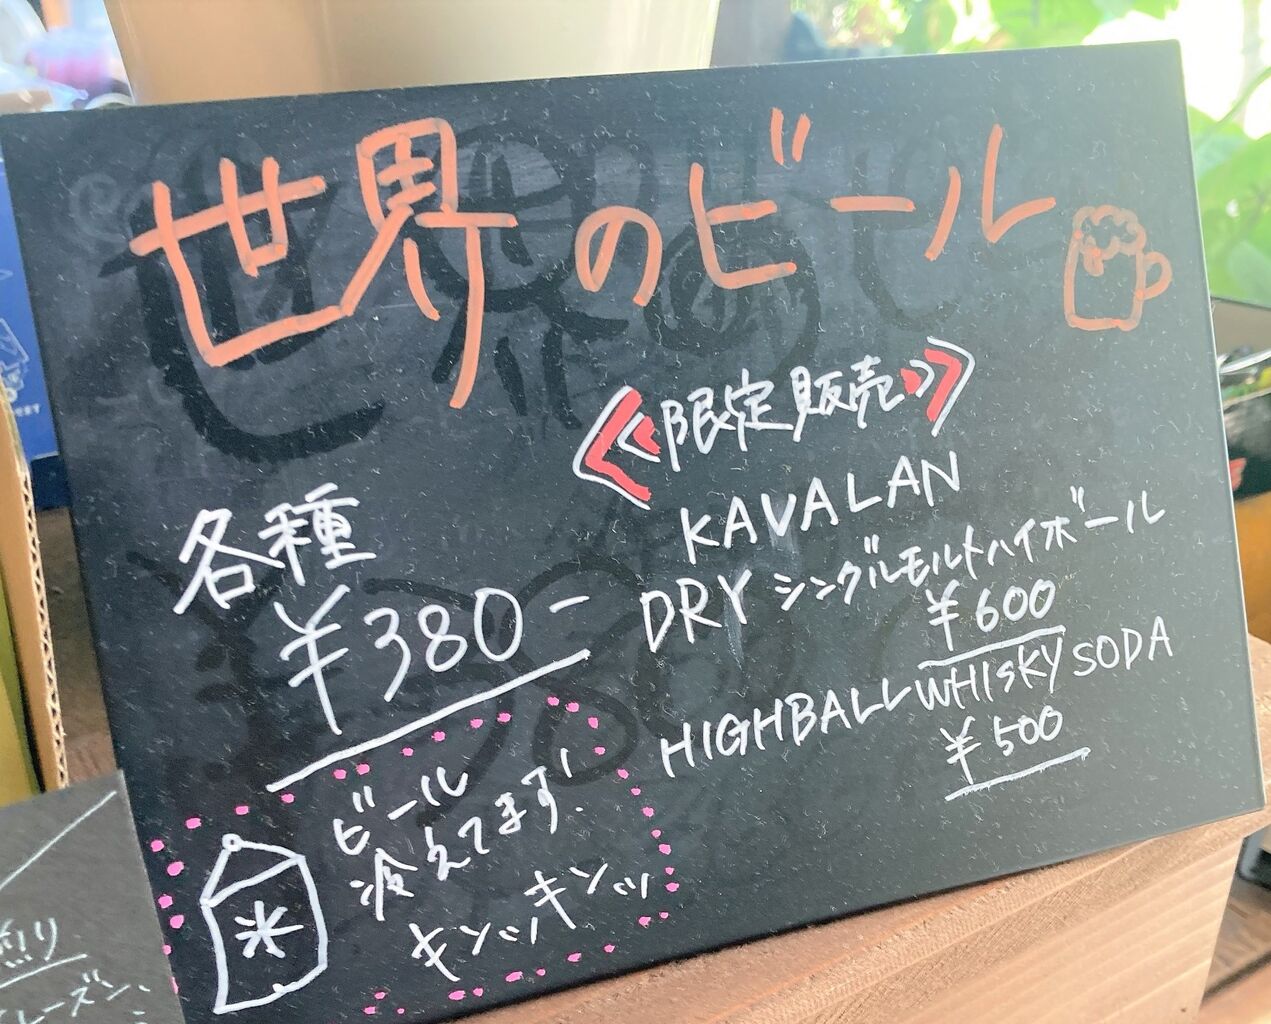 世界のビール
限定販売
各種
¥380-
KAVALAN
DRY シングルモルトハイボール
¥600
HIGHBALL WHISKY SODA
¥500
ビール
冷えてます!
キンッキンッ
氷
レーズン、